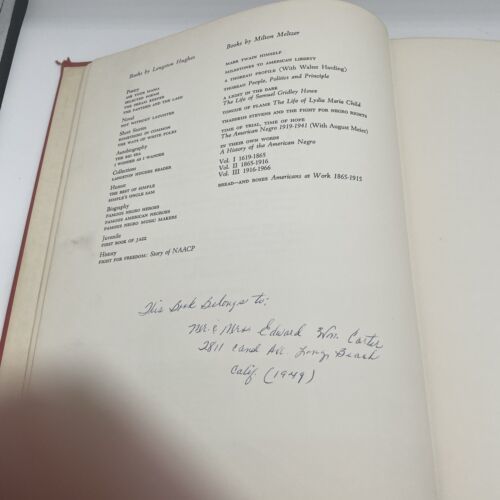 Books by Langston Hughes
Poetry
ASK YOUR MAMA
SELECTED POEMS
THE DREAM KEEPER
THE PANTHER AND THE LASH
Novel
NOT WITHOUT LAUGHTER
Short Stories
SOMETHING IN COMMON
THE WAYS OF WHITE FOLKS
Autobiography
THE BIG SEA
I WONDER AS I WANDER
Collections
LANGSTON HUGHES READER
Humor
THE BEST OF SIMPLE
SIMPLE'S UNCLE SAM
Biography
FAMOUS NEGRO HEROES
FAMOUS AMERICAN NEGROES
FAMOUS NEGRO MUSIC MAKERS
Juvenile
FIRST BOOK OF JAZZ
History
FIGHT FOR FREEDOM: Story of NAACP
Books by Milton Meltzer
MARK TWAIN HIMSELF
MILESTONES TO AMERICAN LIBERTY
A THOREAU PROFILE (With Walter Harding)
THOREAU: People, Politics and Principle
A LIGHT IN THE DARK
The Life of Samuel Gridley Howe
TONGUE OF FLAME The Life of Lydia Maria Child
THADDEUS STEVENS AND THE FIGHT FOR NEGRO RIGHTS
TIME OF TRIAL, TIME OF HOPE
The American Negro 1919-1941 (With August Meier)
IN THEIR OWN WORDS
A History of the American Negro
Vol. I 1619-1865
Vol. II 1865-1916
Vol. III 1916-1966
BREAD—AND ROSES Americans at Work 1865-1915
This Book Belongs to:
Mr. & Mrs Edward Wm. Carter
2811 Ave Long Beach
Calif. (1949)